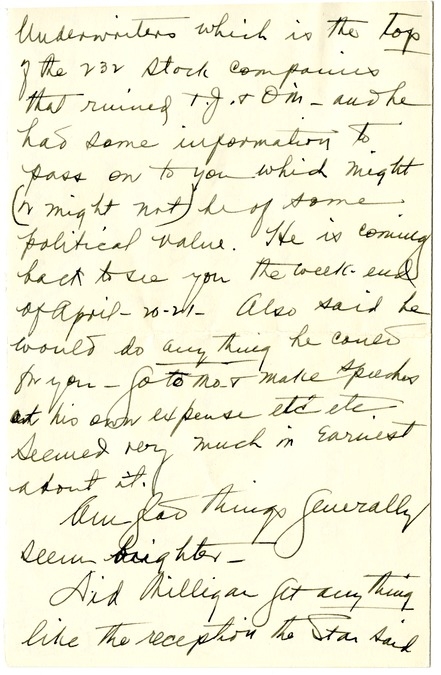 Underwriters which is the top
of the 232 stock companies
that ruined T.J. & O'M – and he
had some information to
pass on to you which might
(or might not) be of some
political value. He is coming
back to see you the week-end
of April – 20-21 – Also said he
would do anything he could
for you – go to Mo. & make speeches
at his own expense etc etc
Seemed very much in Earnest
about it.
Am glad things generally
seem brighter –
Did Milligan get anything
like the reception the Star said